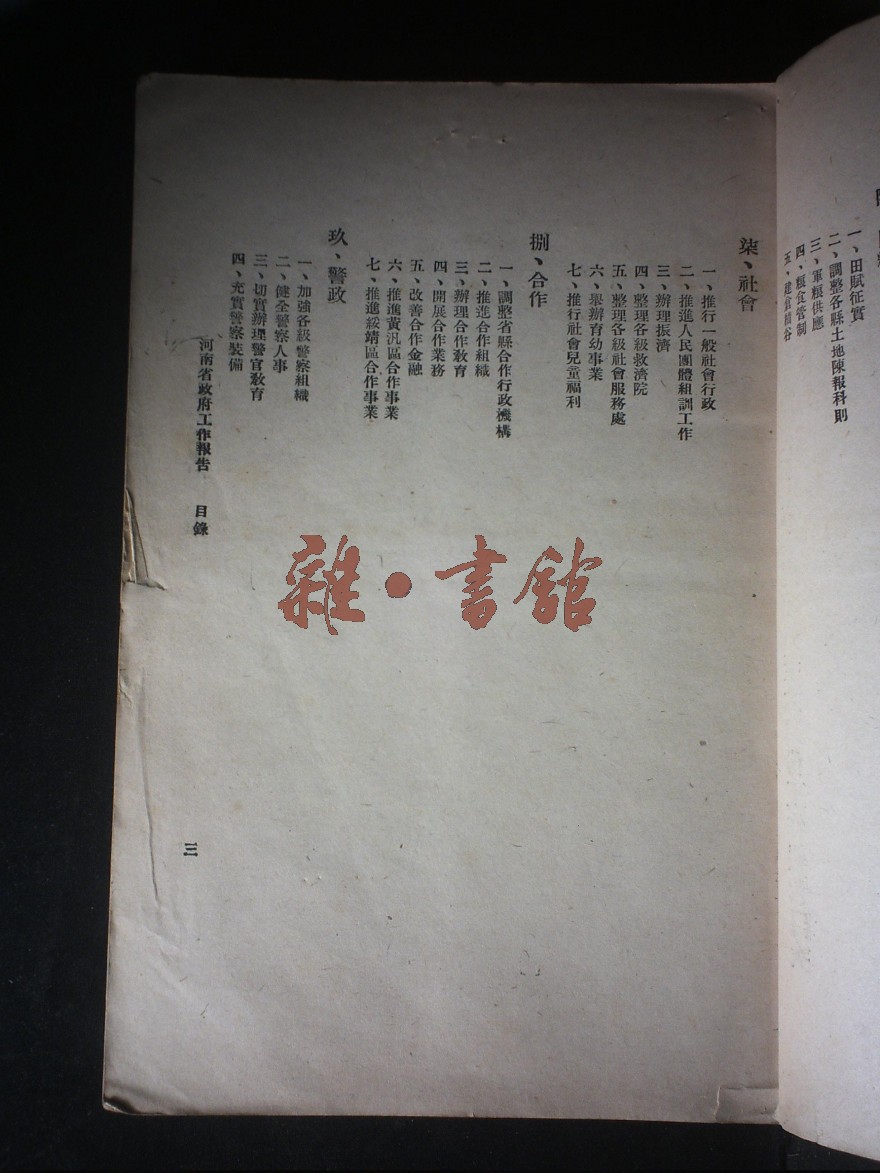 一、田賦征實
二、調整各縣土地陳報科則
三、軍粮供應
四、粮食管制
五、建倉積谷
柒、社會
一、推行一般社會行政
二、推進人民團體組訓工作
三、辦理振濟
四、整理各級救濟院
五、整理各級社會服務處
六、舉辦育幼事業
七、推行社會兒童福利
捌、合作
一、調整省縣合作行政機構
二、推進合作組織
三、辦理合作教育
四、開展合作業務
五、改善合作金融
六、推進黃汎區合作事業
七、推進綏靖區合作事業
玖、警政
一、加強各級警察組織
二、健全警察人事
三、切實辦理警官教育
四、充實警察裝備
河南省政府工作報告 目錄
三
雜·書館